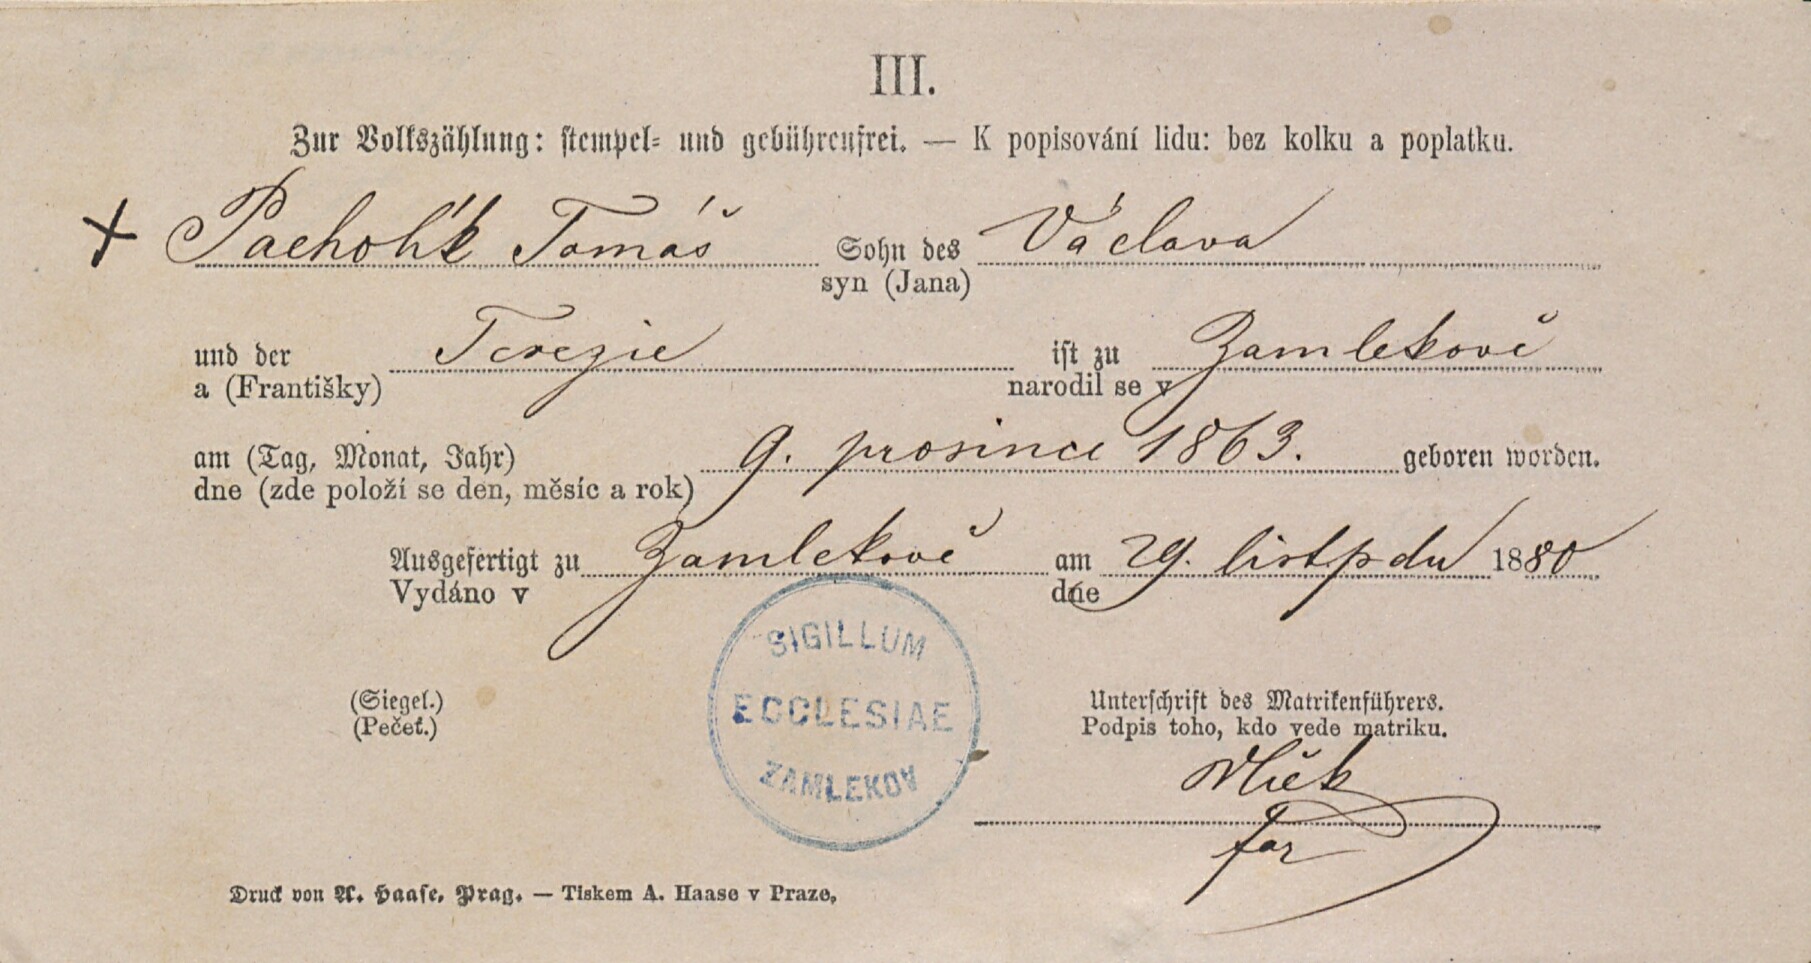 III.
Zur Volkszählung: stempel- und gebührenfrei. — K popisování lidu: bez kolku a poplatku.
+ Pacholík Tomáš Sohn des Václava
syn (Jana)
und der Terezie ist zu Zamlekově
a (Františky) narodil se v
am (Tag, Monat, Jahr) 9. prosince 1863. geboren worden.
dne (zde položí se den, měsíc a rok)
Ausgefertigt zu Zamlekově am 29. listpdu 1880
Vydáno v dne
SIGILLUM
ECCLESIAE
ZAMLEKOV
(Siegel.) Unterschrift des Matrikenführers.
(Pečeť.) Podpis toho, kdo vede matriku.
Vlček
far
Druck von A. Haase, Prag. — Tiskem A. Haase v Praze.